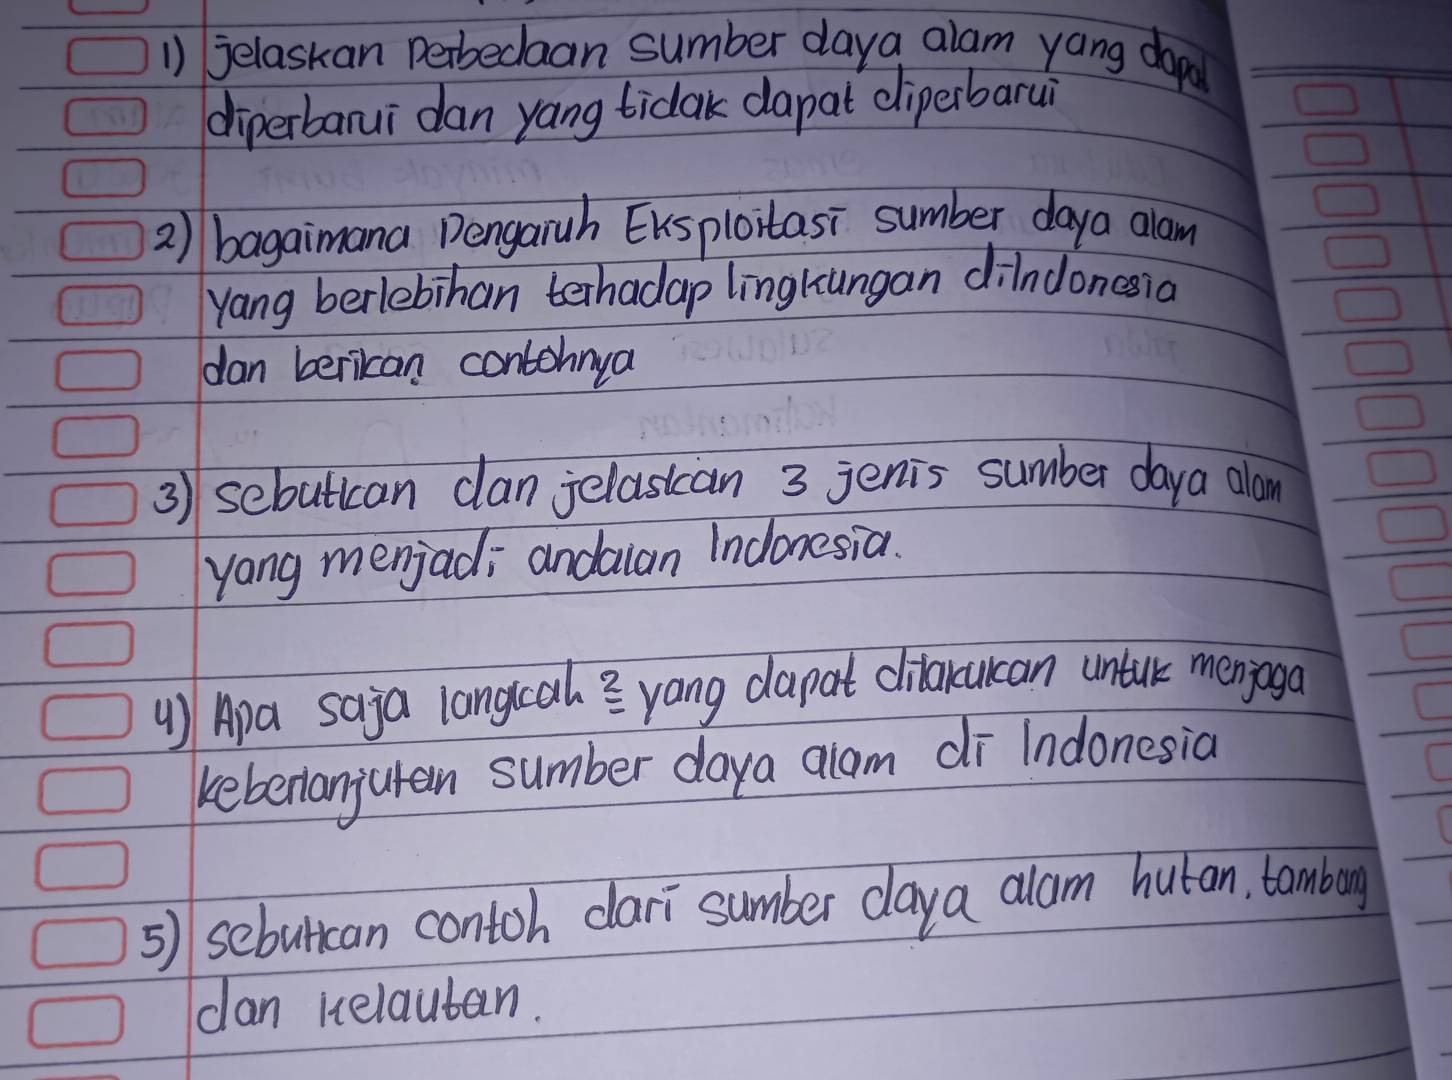 1) jelaskan Perbedaan sumber daya alam yang dapat
diperbarui dan yang tidak dapat diperbarui
2) bagaimana Pengaruh Eksploitasi sumber daya alam
yang berlebihan terhadap lingkungan diIndonesia
dan berikan contohnya
3) sebutkan dan jelaskan 3 jenis sumber daya alam
yang menjadi andalan Indonesia.
4) Apa saja langkah 2 yang dapat dilakukan untuk menjaga
keberlanjutan sumber daya alam di Indonesia
5) sebutkan contoh dari sumber daya alam hutan, tambang
dan kelautan.